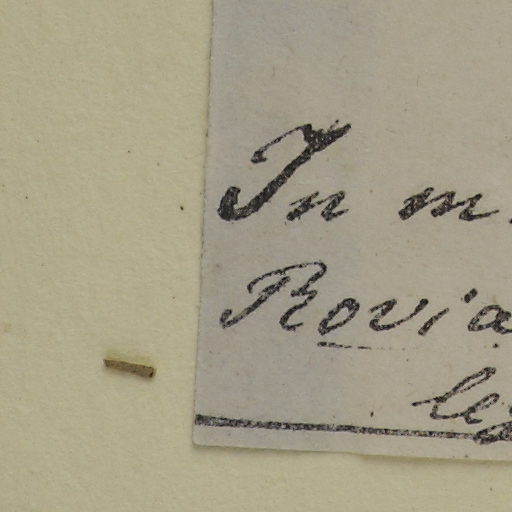 In m
Rovia
leg